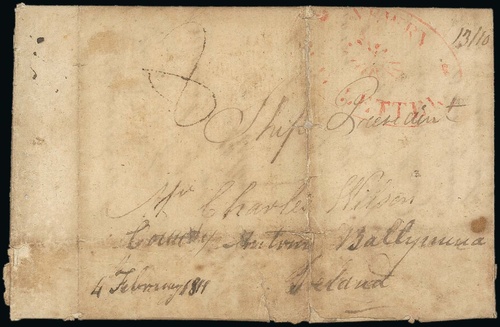 NEWRY
13/10
8
LETTER
Ship President
Mr Charles Wilson
County Antrim Ballymena
Ireland
4 February 1811